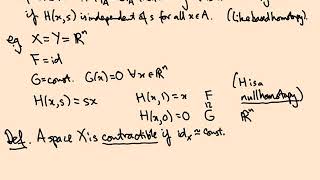 if H(x,s) is independent of s for all x∈A. (like based homotopy).
eg X=Y=ℝⁿ
F=id
G=const. G(x)=0 ∀x∈ℝⁿ
H(x,s)=sx H(x,1)=x F (H is a
≃ nullhomotopy)
H(x,0)=0 G ℝⁿ
Def. A space X is contractible if id_X ≃ const.